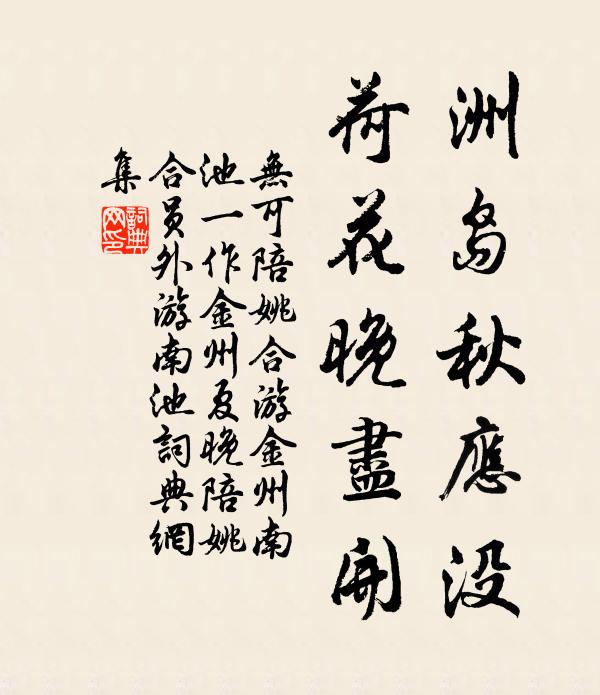 洲島秋應沒
荷花晚盡開
無可陪姚合游金州南
池一作金州夏晚陪姚
合员外游南池詞典網
集
詞典
网印